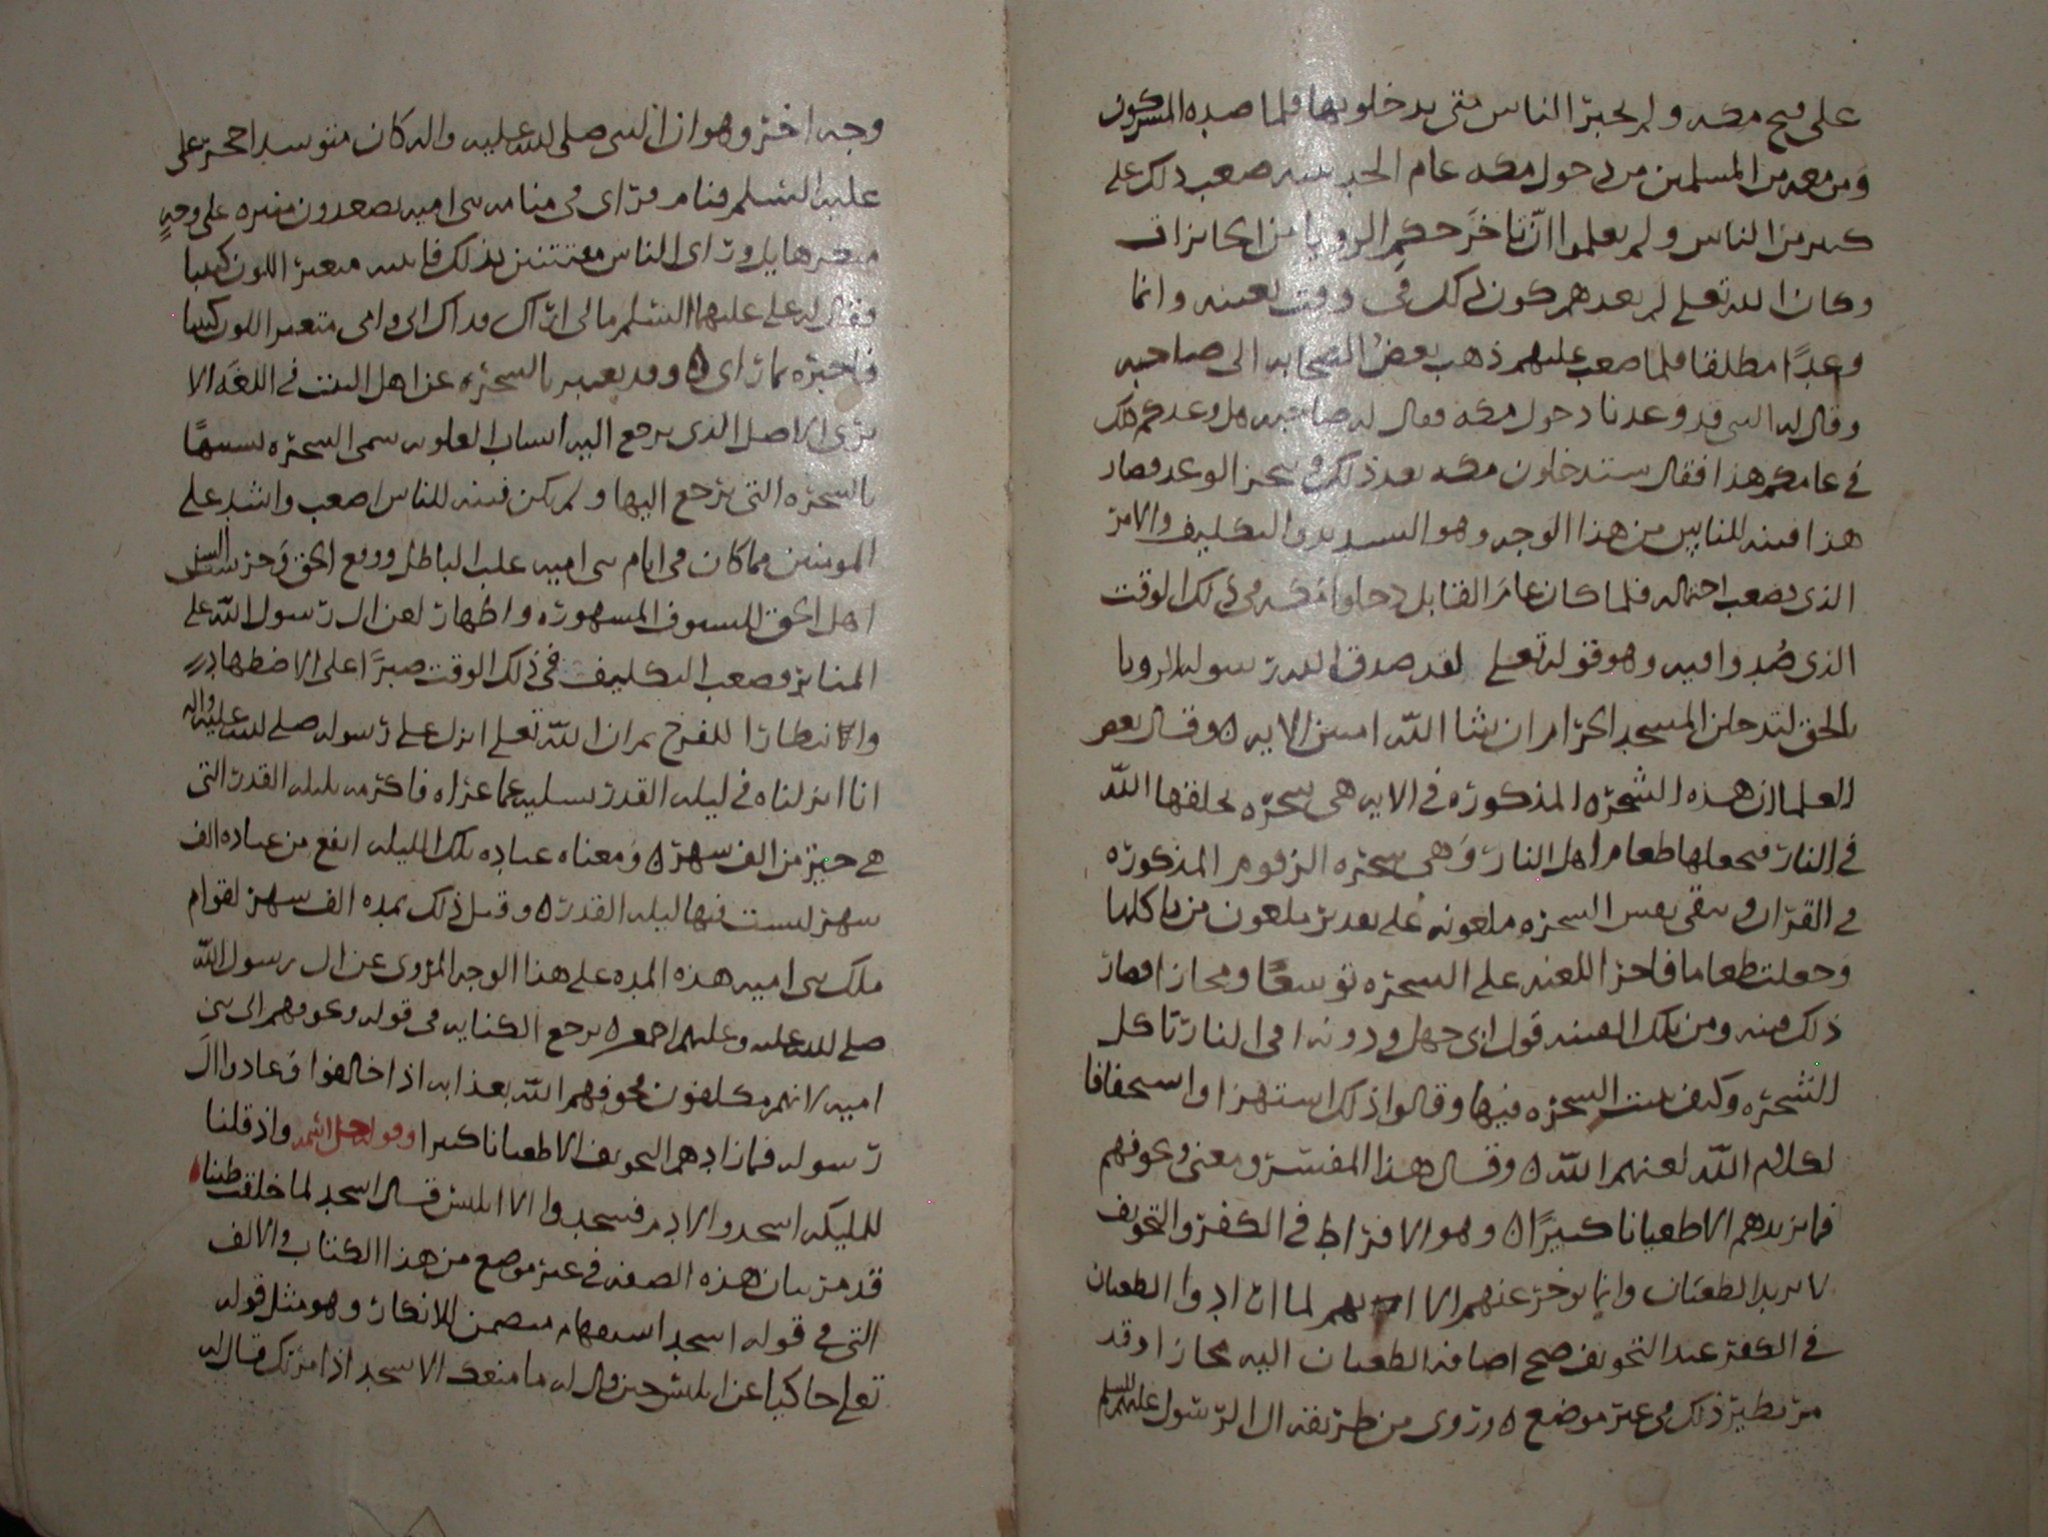 على فتح مكه ولم يخبر الناس متى يدخلونها فلما صده المشركون
ومن معه من المسلمين من دخول مكه عام الحديبيه صعب ذلك على
كثير من الناس ولم يعلموا ان تاخر حكم الرويا من الجايزات
وكان الله تعلى لم يعدهم كون ذلك في وقت بعينه وانما
وعدًا مطلقا فلما صعب عليهم ذهب بعض الصحابه الى صاحبه
وقال له النبي قد وعدنا دخول مكه فقال له صاحبه هل وعدكم ذلك
في عامكم هذا فقال ستدخلون مكه بعد ذلك وينجز الوعد فصار
هذا فتنه للناس من هذا الوجه وهو التشديد والتكليف والامر
الذي يصعب احتماله فلما كان عام القابل دخلوا مكه في ذلك الوقت
الذي صُدوا فيه وهو قوله تعلى لقد صدق الله رسوله الرويا
بالحق لتدخلن المسجد الحرام ان شا الله امنين الايه ه وقال بعض
العلما ان هذه الشجره المذكوره في الايه هي شجره يخلقها الله
في النار فيجعلها طعام اهل النار وهي شجره الزقوم المذكوره
في القران وبقى نفس الشجره ملعونه على تقدير ملعون من ياكلها
وجعلت طعاما فاجرا اللعنه على الشجره توسعًا ومجازا فصار
ذلك فتنه ومن تلك الفتنه قول ابي جهل ودونه افي النار تاكل
الشجره وكيف تنبت الشجره فيها وقالوا ذلك استهزا واستخفافا
لكلام الله لعنهم الله ه وقال هذا المفسر ومعنى ونخوفهم
فما يزيدهم الا طغيانا كبيرًا ه وهو الافراط في الكفر والتخويف
لا يريد الطغيان وانما يوخر عنهم الا انهم لما ازدادوا الطغيان
في الكفر عند التخويف صح اضافه الطغيان اليه مجازا وقد
مر نظير ذلك في غير موضع ه وروي من طريقه ال الرسول عليهم السلم
وجه اخر وهو ان النبي صلى الله عليه واله كان متوسدا حجر على
عليه السلم فنام فراى في منامه بني اميه يصعدون منبره على وجه
منكر هايل وراى الناس مفتتنين بذلك فانتبه متغير اللون كييبا
فقال له على عليهما السلم مالي اراك فداك ابي وامي متغير اللون كييبا
فاخبره بما راى ه وقد يعبر بالشجره عن اهل البيت في اللغه الا
ترى الاصل الذي يرجع اليه انساب العلويه سمى الشجره تشبيهًا
بالشجره التى يرجع اليها ولم يكن فتنه للناس اصعب واشد على
المومنين مما كان في ايام بني اميه غلب الباطل ووقع الحق وحز
اهل الحق للسيوف المشهوره واظهار لعن ال رسول الله على
المنابر فصعب التكليف في ذلك الوقت صبرًا على الاضطهاد
والانتظارا للفرج ثم ان الله تعلى انزل على رسوله صلى الله عليه واله
انا انزلناه في ليله القدر تسليه عما عراه فاكرمه بليله القدر التى
هي خير من الف شهر ه ومعناه عباده تلك الليله انفع من عباده الف
شهر ليست فيها ليله القدر ه وقيل ذلك بمده الف شهر لقوام
ملك بني اميه هذه المده على هذا الوجه المروي عن ال رسول الله
صلى الله عليه وعليهم اجمع ه يرجع الكنايه في قوله ونخوفهم الى بني
اميه لانهم مكلفون يخوفهم الله بعذابه اذا خالفوا وعادوا ال
رسوله فما زادهم التخويف الا طغيانا كبيرا وقوله جل اسمه واذ قلنا
للمليكه اسجدوا لادم فسجدوا الا ابليس قال اسجد لما خلقت طينا
قد مر بيان هذه الصفه في غير موضع من هذا الكتاب والالف
التي في قوله اسجد استفهام متضمن للانكار وهو مثل قوله
تعلى حاكيا عن ابليس حين قال له ما منعك الا تسجد اذ امرتك قال له